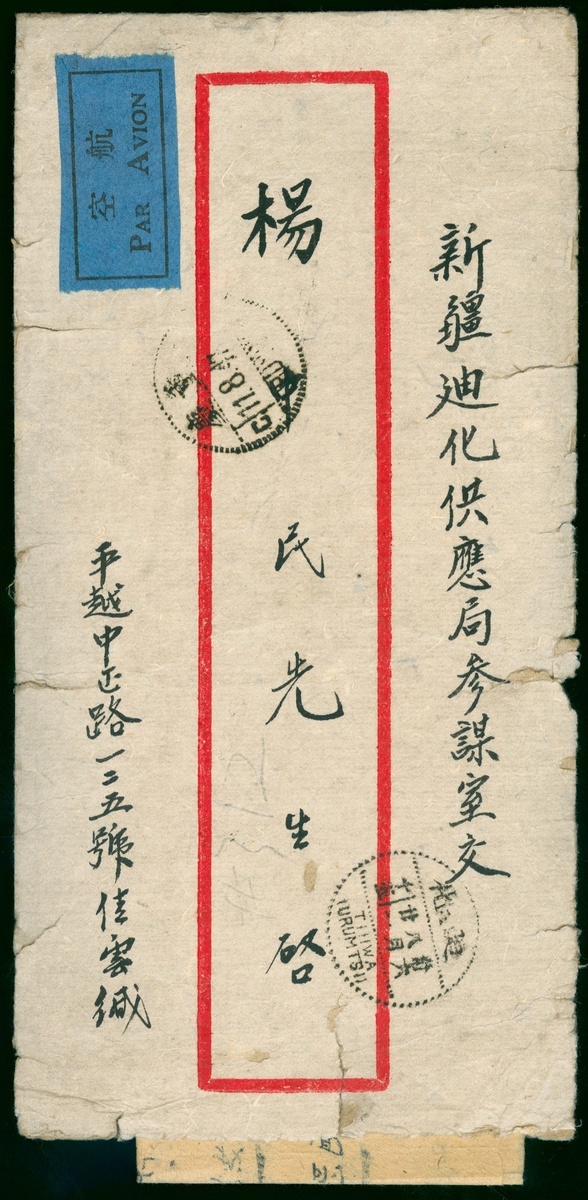 新疆迪化供應局參謀室交
楊民先生啓
平越中正路一二五號佳雲緘
航空
PAR AVION
11.8
迪化
TIHWA
(URUMTSI)